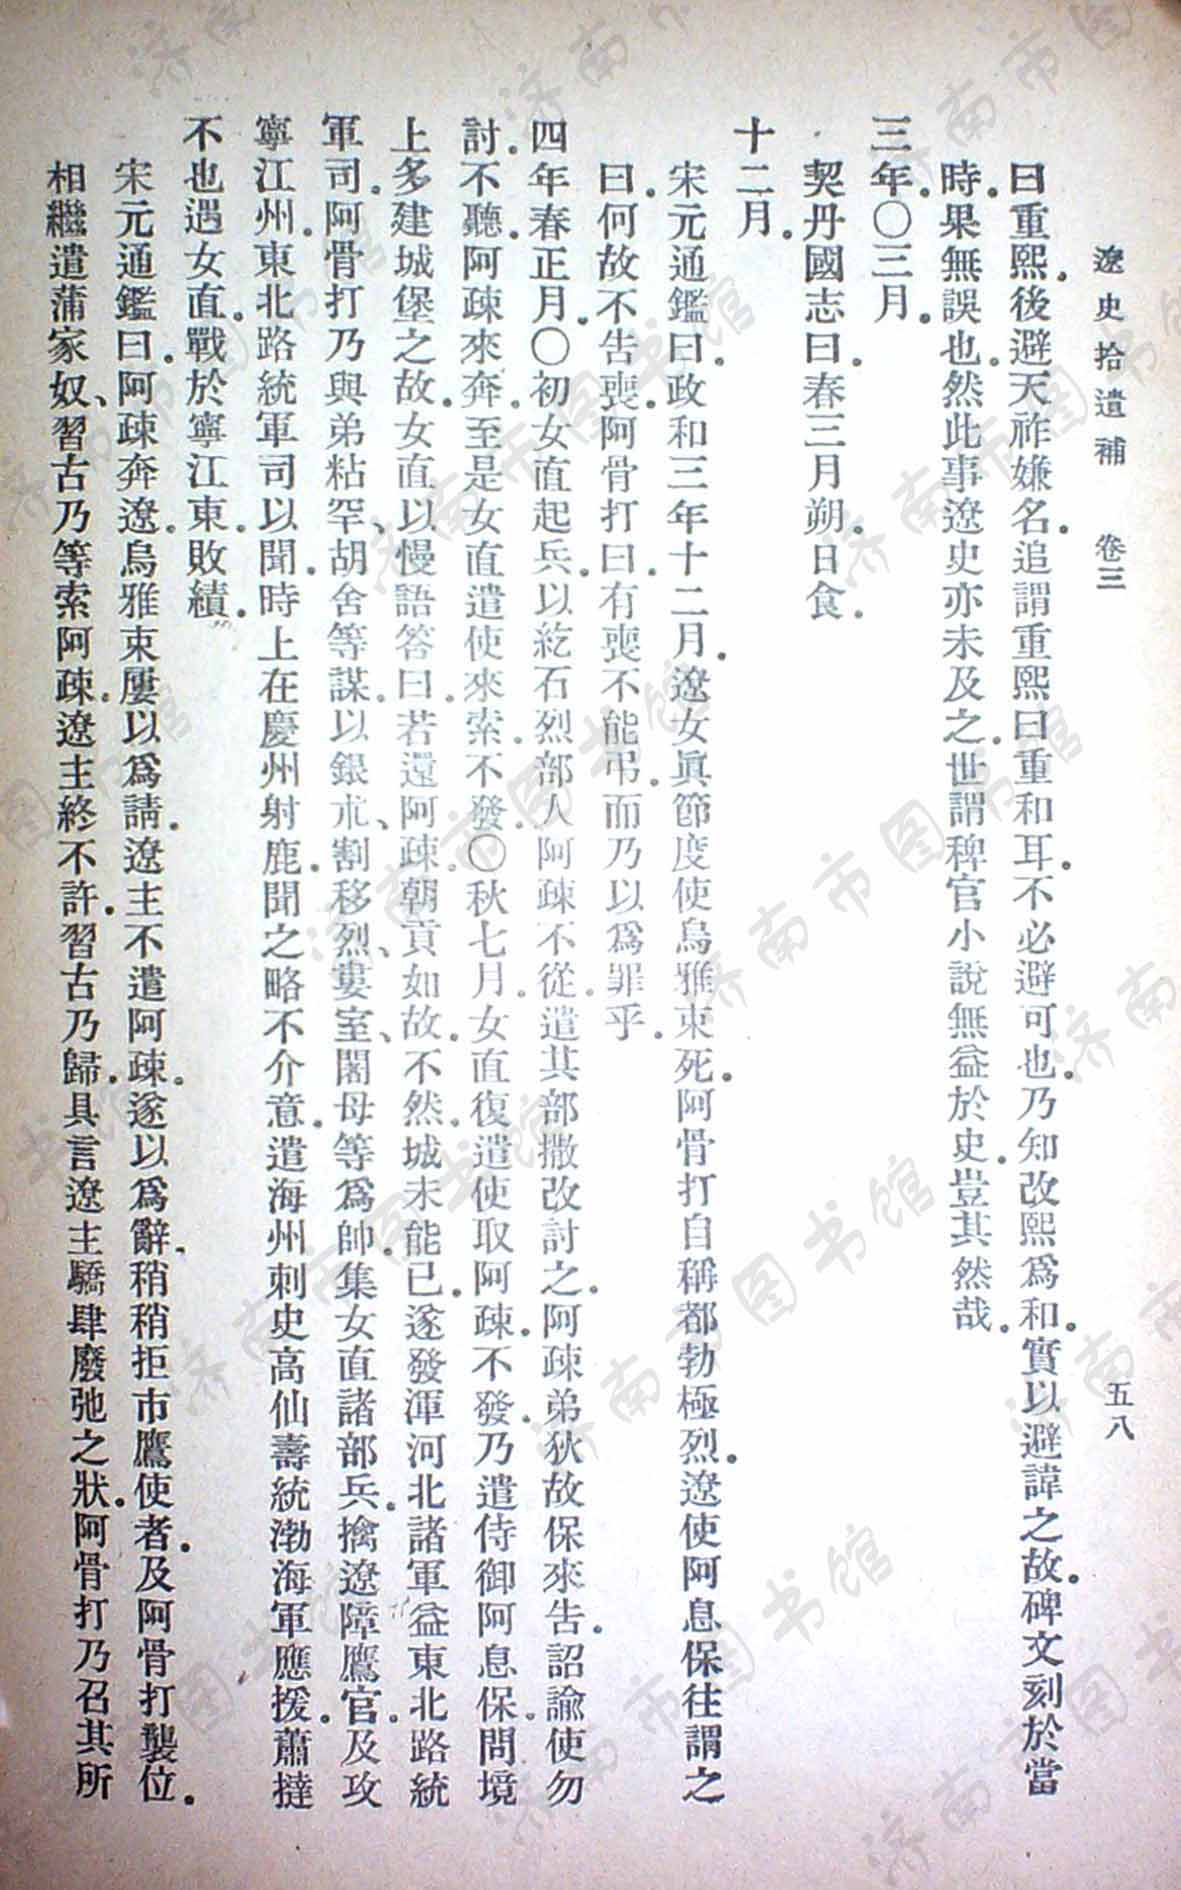 遼史拾遺補 卷三 五八
曰重熙。後避天祚嫌名。追謂重熙曰重和耳。不必避可也。乃知改熙爲和。實以避諱之故。碑文刻於當
時。果無誤也。然此事遼史亦未及之。世謂稗官小說無益於史。豈其然哉。
三年。〇三月。
契丹國志曰。春三月朔。日食。
十二月。
宋元通鑑曰。政和三年十二月。遼女眞節度使烏雅束死。阿骨打自稱都勃極烈。遼使阿息保往謂之
曰。何故不告喪。阿骨打曰。有喪不能弔。而乃以爲罪乎。
四年春正月。〇初女直起兵。以紇石烈部人阿疎不從。遣其部撒改討之。阿疎弟狄故保來告。詔諭使勿
討。不聽。阿疎來奔。至是女直遣使來索。不發。〇秋七月。女直復遣使取阿疎。不發。乃遣侍御阿息保。問境
上多建城堡之故。女直以慢語答曰。若還阿疎。朝貢如故。不然。城未能已。遂發渾河北諸軍。益東北路統
軍司。阿骨打乃與弟粘罕、胡舍等謀。以銀朮、割移烈、婁室、闍母等爲帥。集女直諸部兵。擒遼障鷹官。及攻
寧江州。東北路統軍司以聞。時上在慶州射鹿。聞之略不介意。遣海州刺史高仙壽統渤海軍應援。蕭撻
不也遇女直。戰於寧江東。敗績。
宋元通鑑曰。阿疎奔遼。烏雅束屢以爲請。遼主不遣阿疎。遂以爲辭。稍稍拒市鷹使者。及阿骨打襲位。
相繼遣蒲家奴、習古乃等索阿疎。遼主終不許。習古乃歸。具言遼主驕肆廢弛之狀。阿骨打乃召其所
济南市图书馆